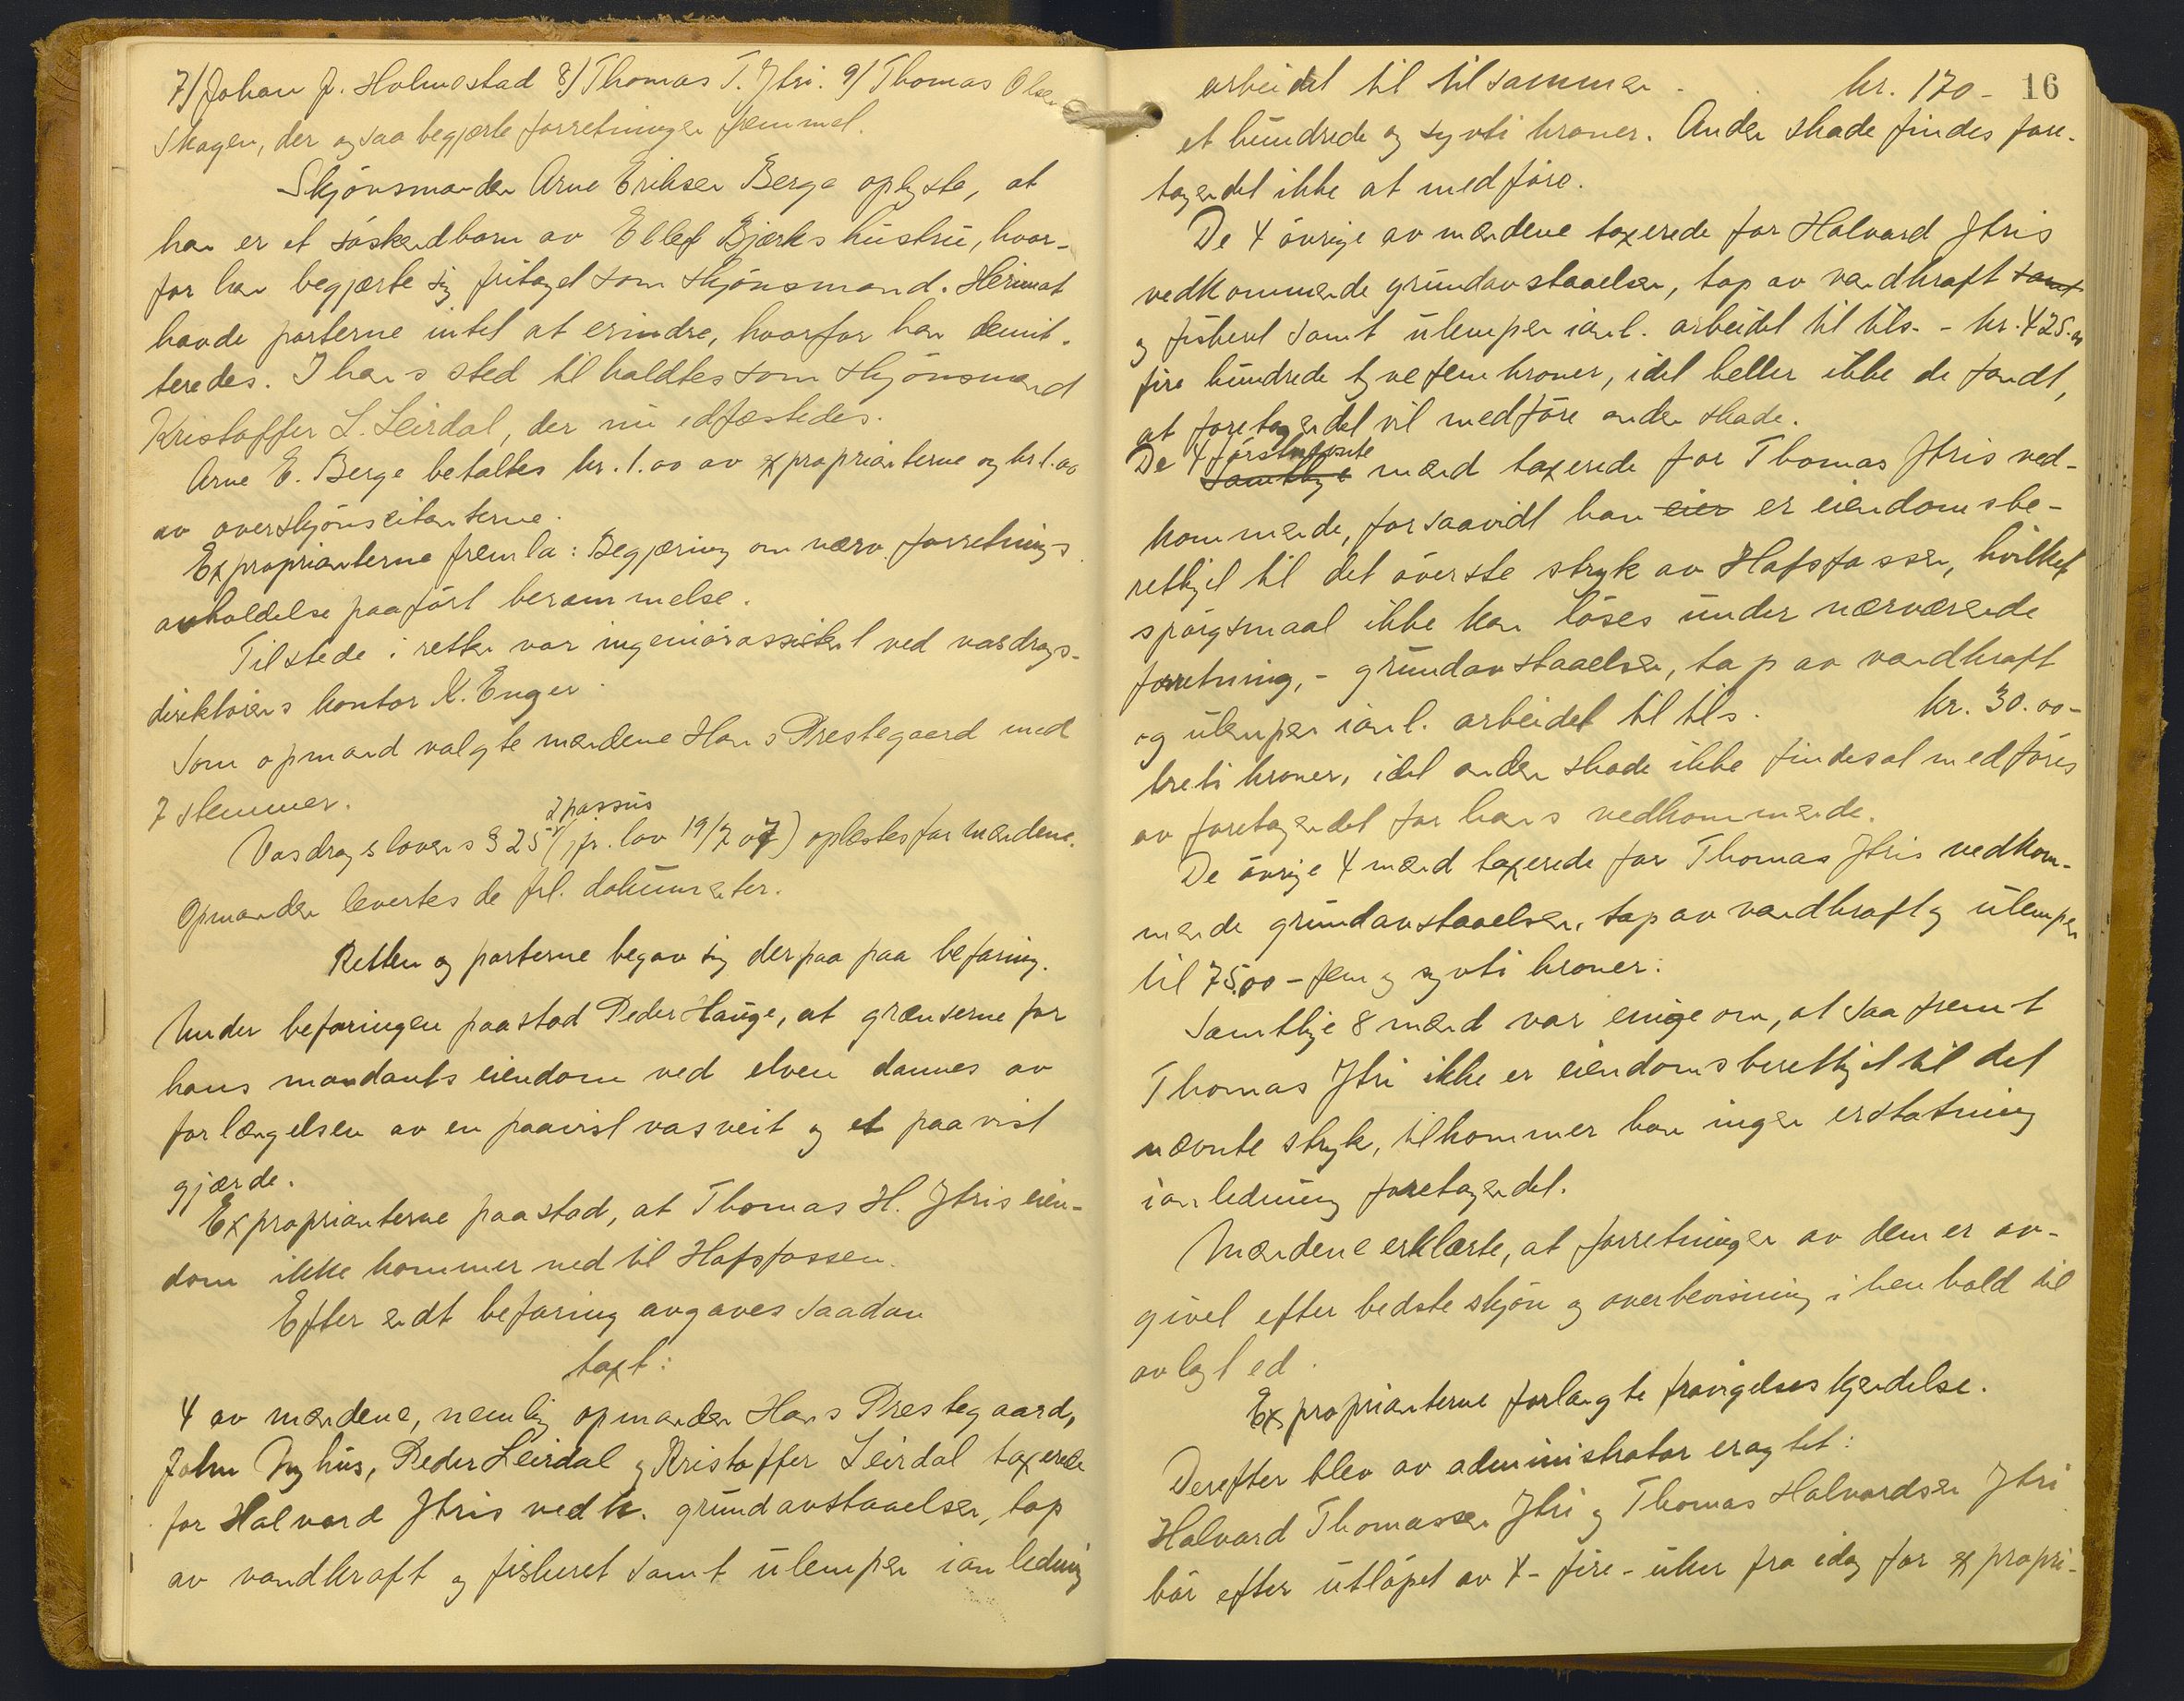 7/ Johan J. Holmostad 8/ Thomas T. Jtri. 9/ Thomas Olsen
Skogen, der ogsaa begjærte forretningen fremmet.
Skjönsmanden Arne Eriksen Berge oplyste, at
han er et söskendbarn av Ellef Bjærks hustru, hvor-
for han begjærte sig fritaget som skjönsmand. Herimot
havde parterne intet at erindre, hvorfor han demit-
teredes. I hans sted tilkaldtes som skjönsmand
Kristoffer L. Leirdal, der nu edfæstedes.
Arne E. Berge betaltes kr. 1.00 av exproprianterne og kr 1.00
av overskjönscitanterne.
Exproprianterne fremla: Begjæring om nærv. forretnings
avholdelse paaført berammelse.
Tilstede i retten var ingeniörassistent ved vasdrags-
direktörens kontor K. Enger.
Som opmand valgte mændene Hans Prestegaard med
7 stemmer.
2 passus
Vasdragslovens § 25 (jfr. lov 19/7 07) oplæstes for mændene.
Opmanden levertes de frl. dokumenter.
Retten og parterne begav sig derpaa paa befaring.
Under befaringen paastod Peder Hauge, at grænserne for
hans mandants eiendom ved elven dannes av
forlængelsen av en paavist vasveit og et paavist
gjærde.
Exproprianterne paastod, at Thomas H. Jtris eien-
dom ikke kommer ned til Hafsfossen.
Efter endt befaring avgaves saadan
taxt:
4 av mændene, nemlig opmanden Hans Prestegaard,
John Nyhus, Peder Leirdal og Kristoffer Leirdal taxerede
for Halvard Jtris vedk. grundavstaaelsen, tap
av vandkraft og fiskeret samt ulemper ianledning
arbeidet til tilsammen - . kr. 170- 16
et hundrede og sytti kroner. Anden skade findes fore-
tagendet ikke at medföre.
De 4 övrige av mændene taxerede for Halvard Jtris
vedkommende grundavstaaelsen, tap av vandkraft samt
og fiskeret samt ulemper ianl. arbeidet til tils. - kr. 425.00
fire hundrede tyvefem kroner, idet heller ikke de fandt,
at foretagendet vil medföre anden skade.
förstnævnte
De 4 samtlige mænd taxerede for Thomas Jtris ved-
kommende, forsaavidt han eier er eiendomsbe-
rettiget til det överste stryk av Hafsfossen, hvilket
spörgsmaal ikke kan löses under nærværende
forretning, - grundavstaaelsen, tap av vandkraft
og ulemper ianl. arbeidet til tils. kr. 30.00-
treti kroner, idet anden skade ikke findes at medföres
av foretagendet for hans vedkommende.
De övrige 4 mænd taxerede for Thomas Jtris vedkom-
mende grundavstaaelsen, tap av vandkraft og ulemper
til 75.00 - fem og sytti kroner.
Samtlige 8 mænd var enige om, at saafremt
Thomas Jtri ikke er eiendomsberettiget til det
nævnte stryk, tilkommer han ingen erstatning
ianledning foretagendet.
Mændene erklærte, at forretningen av dem er av-
givet efter bedste skjön og overbevisning i henhold til
avlagt ed.
Exproprianterne forlangte fravigelseskjendelse.
Derefter blev av administrator eragtet:
Halvard Thomassen Jtri og Thomas Halvardsen Jtri
bör efter utlöpet av 4- fire - uker fra idag for expropri-